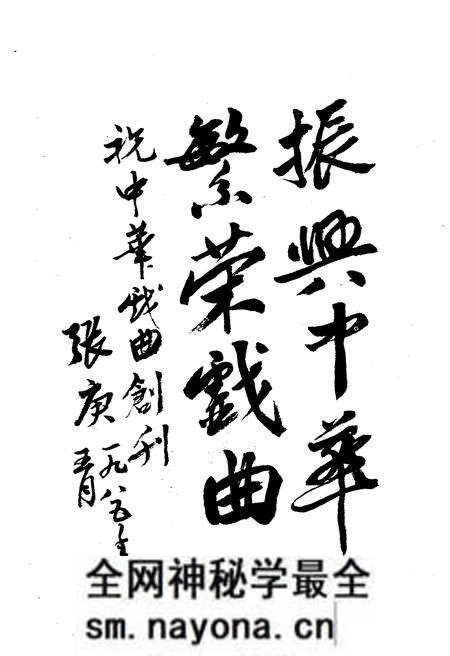 振興中華
繁荣戲曲
祝中華戏曲創刊
張庚 一九八五年
五月
全网神秘学最全
sm.nayona.cn